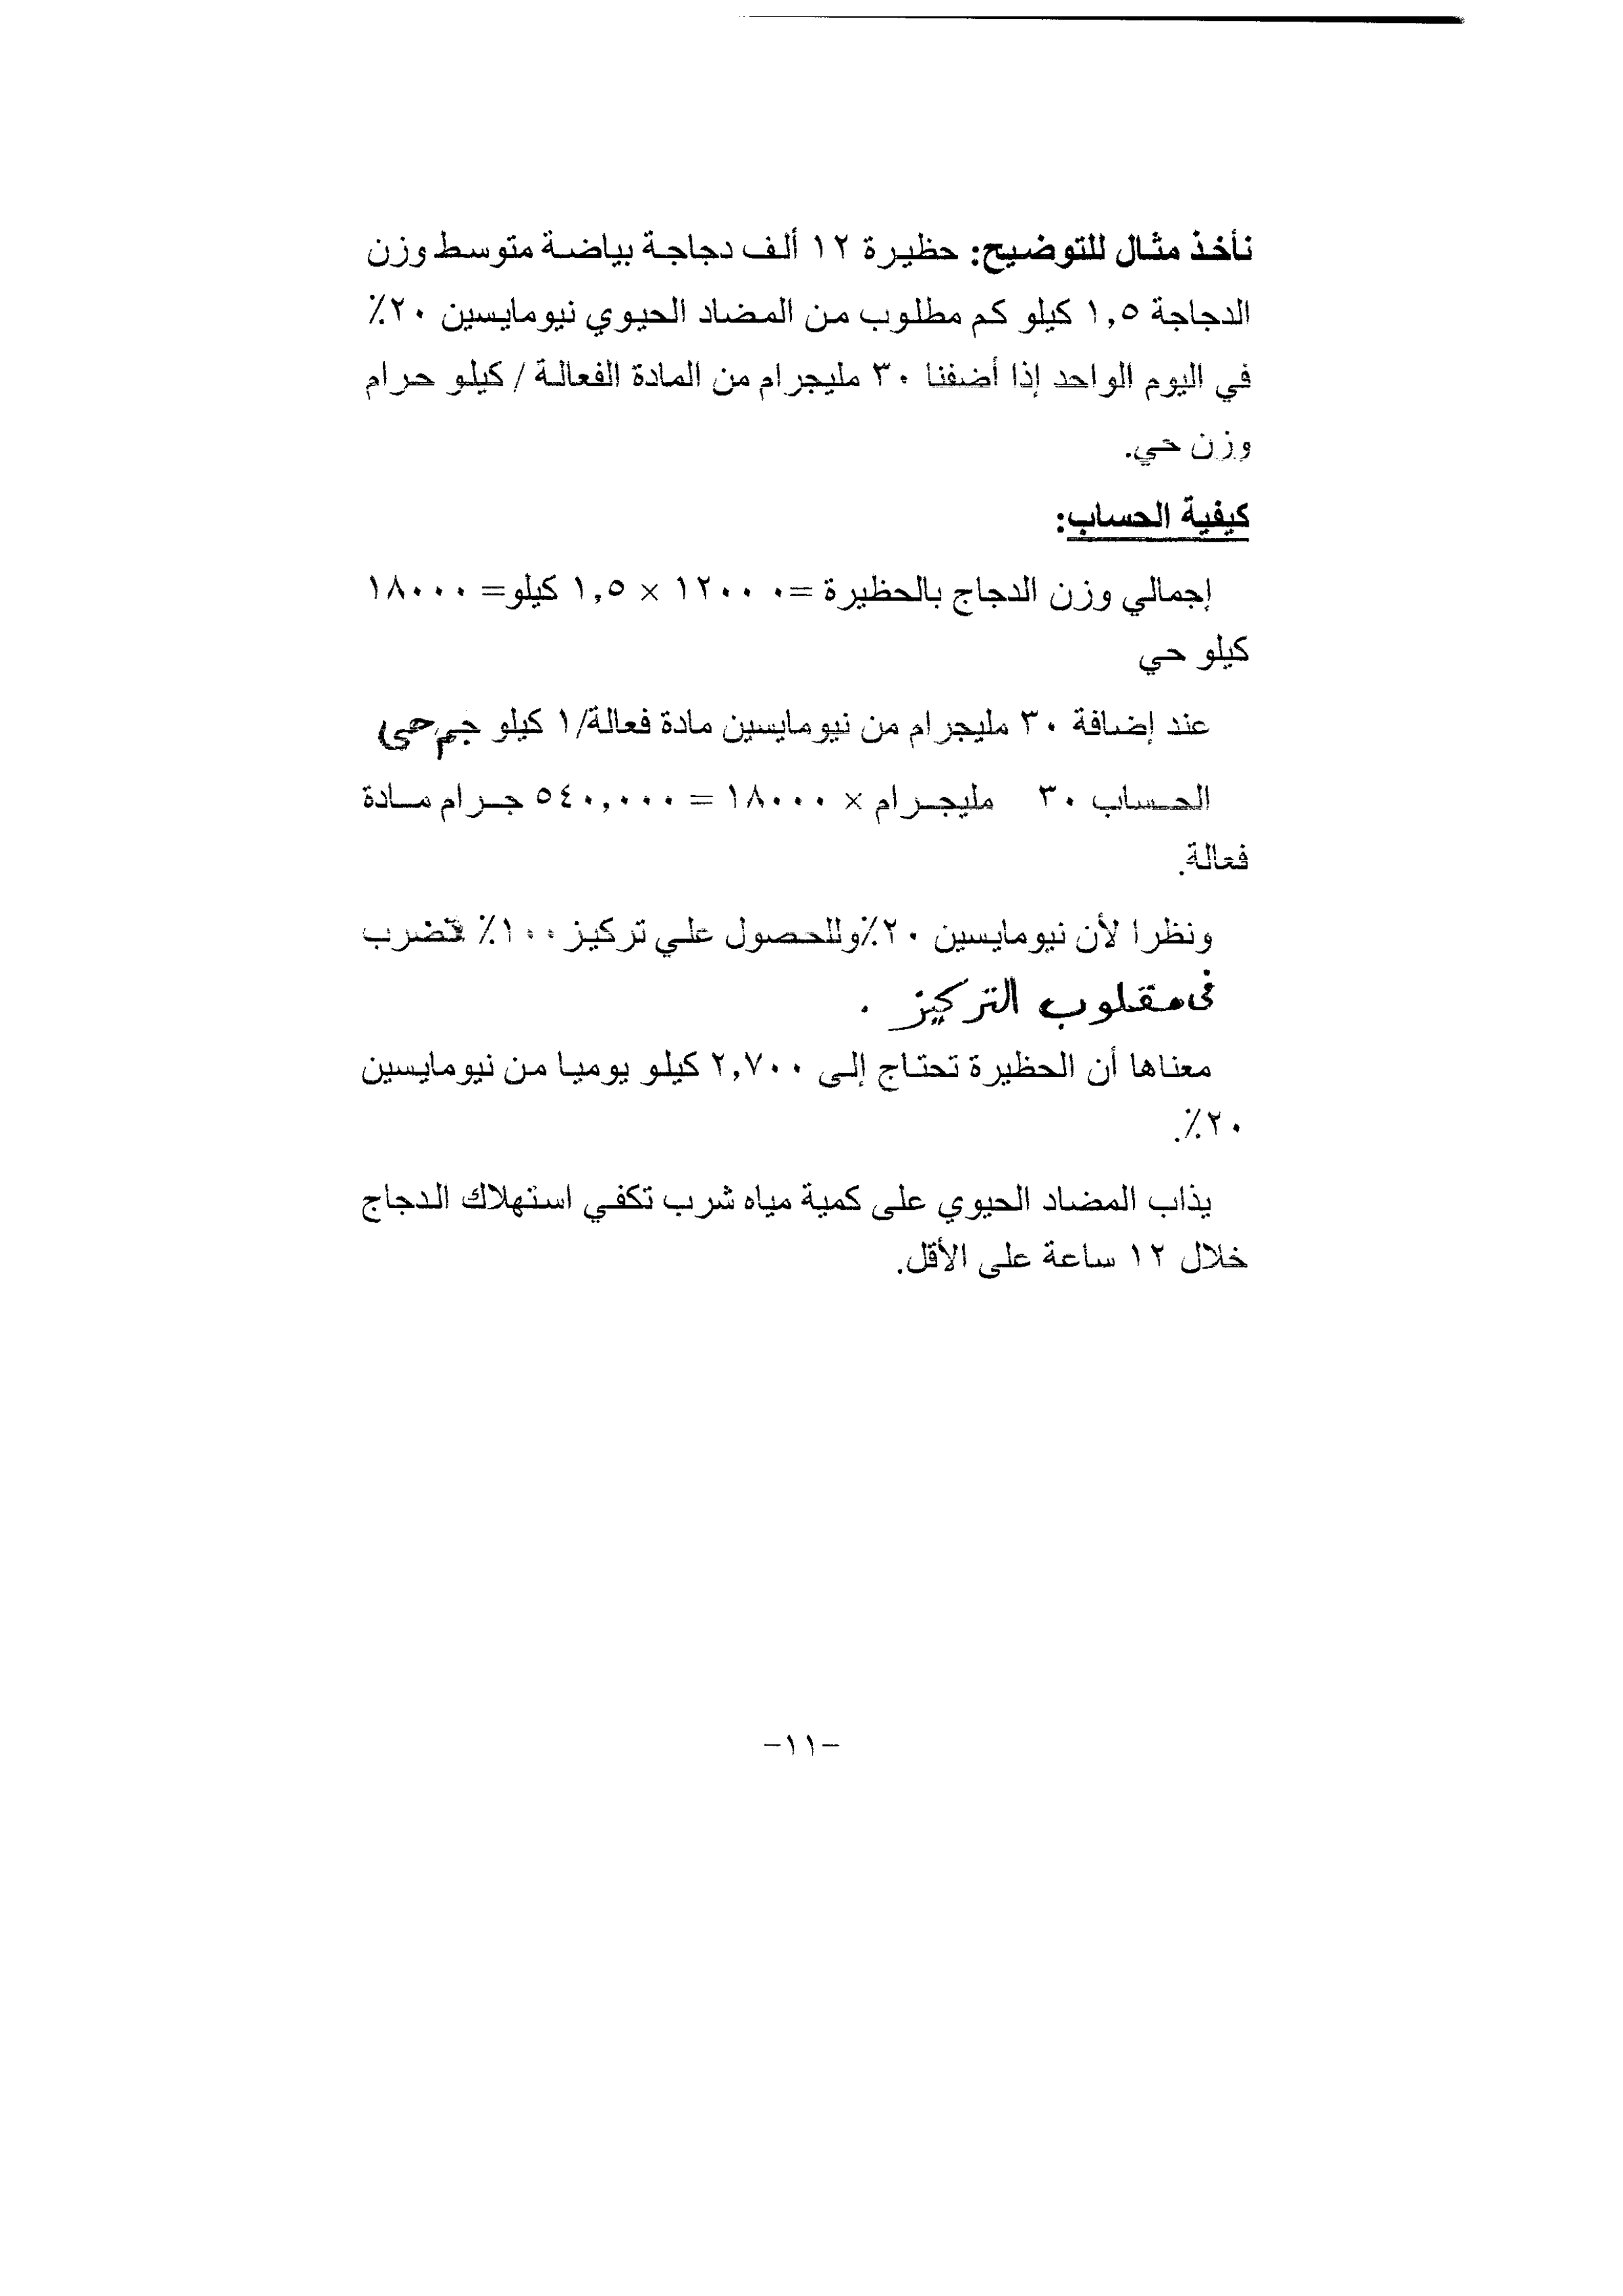 نأخذ مثال للتوضيح: حظيرة ١٢ ألف دجاجة بياضة متوسط وزن
الدجاجة ١,٥ كيلو كم مطلوب من المضاد الحيوي نيومايسين ٢٠٪
في اليوم الواحد إذا أضفنا ٣٠ مليجرام من المادة الفعالة / كيلو حرام
وزن حي.
كيفية الحساب:
إجمالي وزن الدجاج بالحظيرة = ١٢٠٠٠ × ١,٥ كيلو= ١٨٠٠٠
كيلو حي
عند إضافة ٣٠ مليجرام من نيومايسين مادة فعالة/١ كيلو جم حي
الحساب ٣٠ مليجرام × ١٨٠٠٠ = ٥٤٠,٠٠٠ جرام مادة
فعالة.
ونظرا لأن نيومايسين ٢٠٪وللحصول علي تركيز ١٠٠٪ تضرب
في مقلوب التركيز .
معناها أن الحظيرة تحتاج إلى ٢,٧٠٠ كيلو يوميا من نيومايسين
٢٠٪.
يذاب المضاد الحيوي على كمية مياه شرب تكفي استهلاك الدجاج
خلال ١٢ ساعة على الأقل.
-١١-